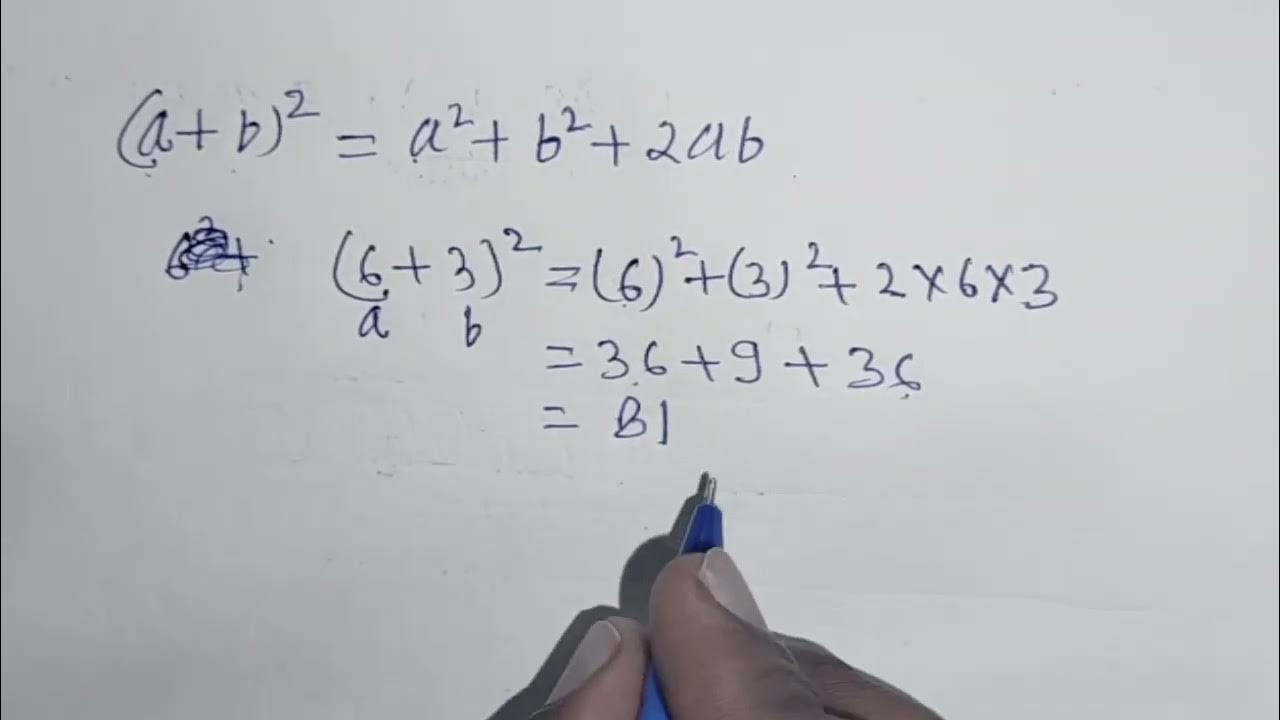 (a+b)² = a² + b² + 2ab
(6+3)² = (6)² + (3)² + 2×6×3
a b
= 36 + 9 + 36
= 81